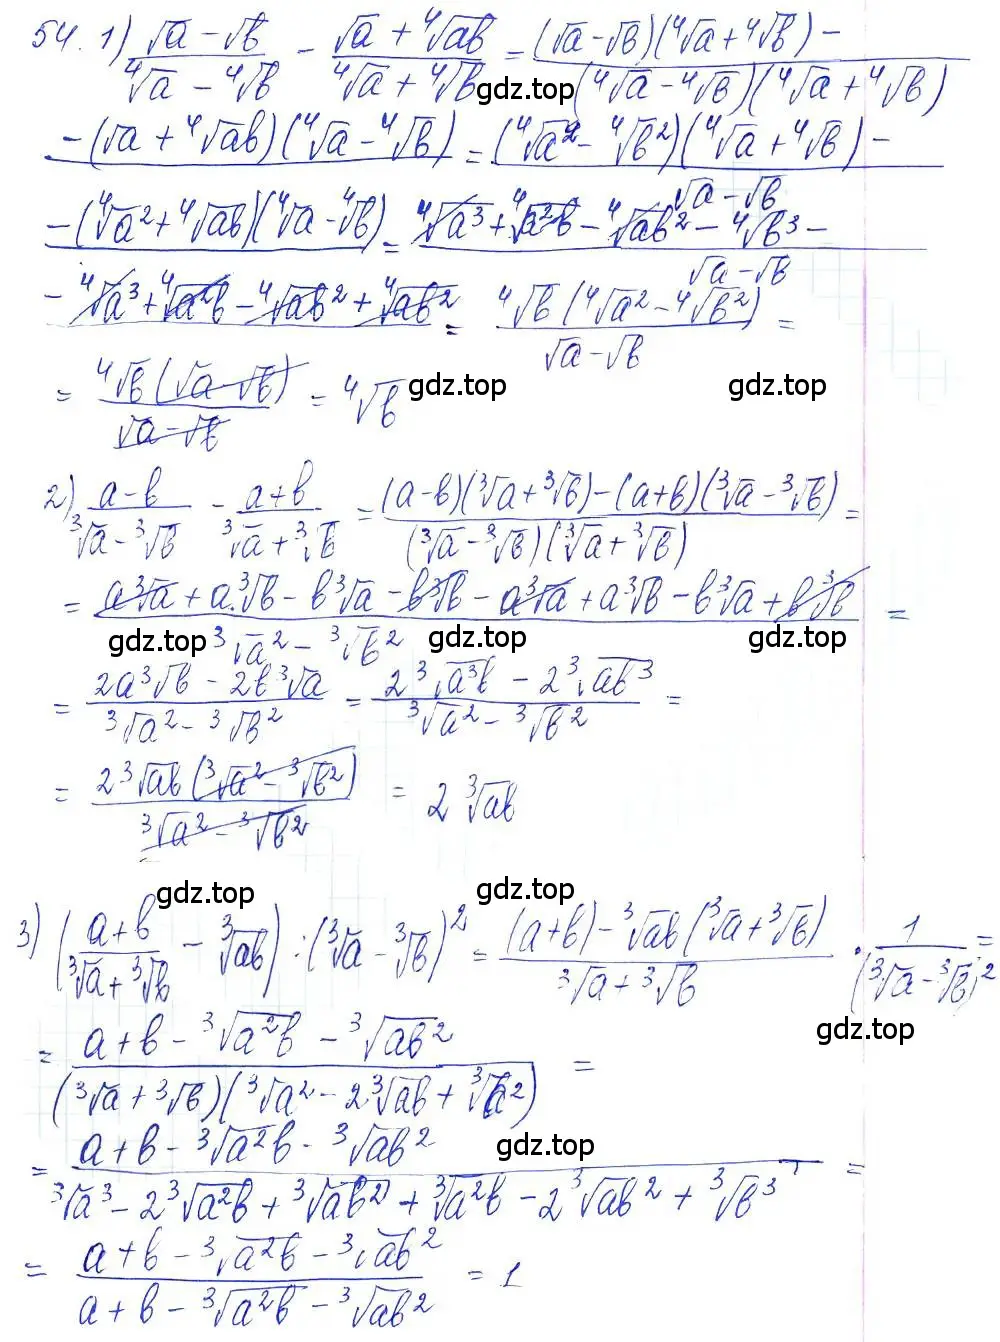 54. 1) (√a − √b)/(⁴√a − ⁴√b) − (√a + ⁴√ab)/(⁴√a + ⁴√b) = (√a − √b)(⁴√a + ⁴√b) −
gdz.top (⁴√a − ⁴√b)(⁴√a + ⁴√b)
−(√a + ⁴√ab)(⁴√a − ⁴√b) = (⁴√a² − ⁴√b²)(⁴√a + ⁴√b) −
√a − √b
−(⁴√a² + ⁴√ab)(⁴√a − ⁴√b) = ⁴√a³ + ⁴√a²b − ⁴√ab² − ⁴√b³ −
√a − √b
− ⁴√a³ + ⁴√a²b − ⁴√ab² + ⁴√ab² = ⁴√b(⁴√a² − ⁴√b²)/(√a − √b) =
= ⁴√b(√a − √b)/(√a − √b) = ⁴√b
gdz.top gdz.top
2) (a − b)/(³√a − ³√b) − (a + b)/(³√a + ³√b) = ((a − b)(³√a + ³√b) − (a + b)(³√a − ³√b))/((³√a − ³√b)(³√a + ³√b)) =
= (a³√a + a·³√b − b³√a − b³√b − a³√a + a³√b − b³√a + b³√b)/(³√a² − ³√b²) =
gdz.top gdz.top gdz.top
= (2a³√b − 2b³√a)/(³√a² − ³√b²) = (2³√a³b − 2³√ab³)/(³√a² − ³√b²) =
= 2³√ab(³√a² − ³√b²)/(³√a² − ³√b²) = 2³√ab
gdz.top gdz.top
3) ((a + b)/(³√a + ³√b) − ³√ab) : (³√a − ³√b)² = ((a + b) − ³√ab(³√a + ³√b))/(³√a + ³√b) · 1/(³√a − ³√b)² =
gdz.top
= (a + b − ³√a²b − ³√ab²)/((³√a + ³√b)(³√a² − 2³√ab + ³√b²)) =
gdz.top
= (a + b − ³√a²b − ³√ab²)/(³√a³ − 2³√a²b + ³√ab² + ³√a²b − 2³√ab² + ³√b³) =
= (a + b − ³√a²b − ³√ab²)/(a + b − ³√a²b − ³√ab²) = 1